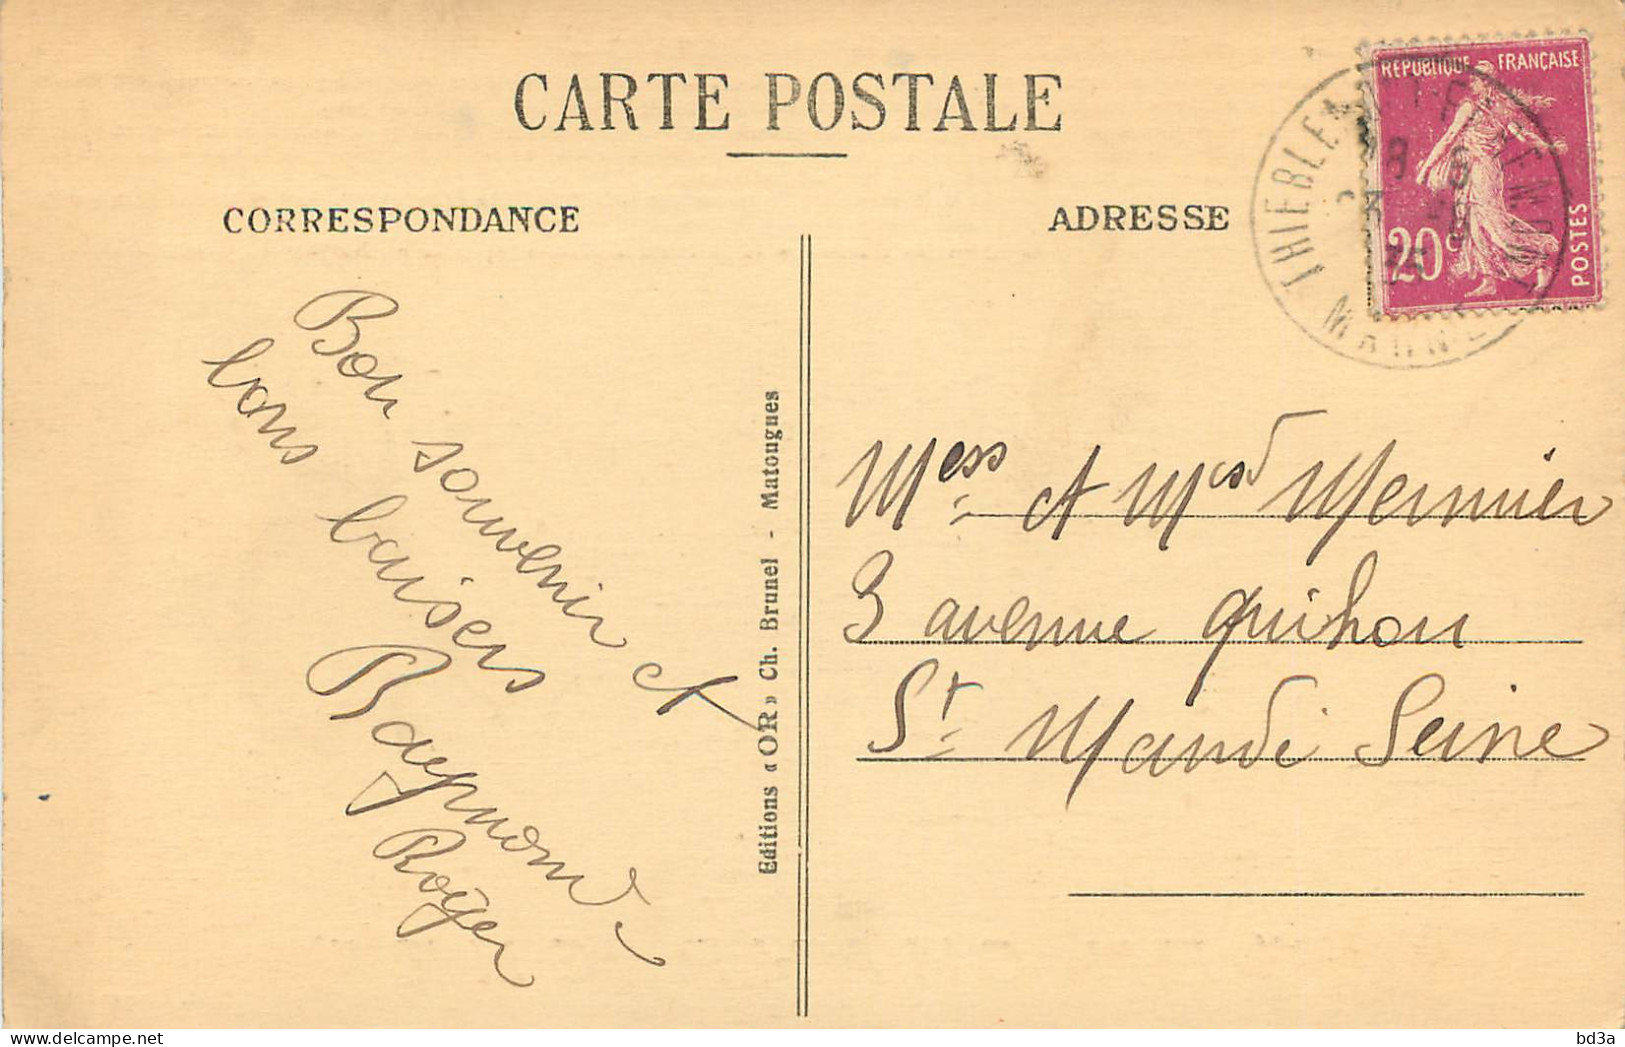 CARTE POSTALE
CORRESPONDANCE
ADRESSE
RÉPUBLIQUE FRANÇAISE
20c
POSTES
THIEBLEMONT-FAREMONT
MARNE
Bon souvenir et
bons baisers
Raymond.
Royer
Editions « OR » Ch. Brunel - Matougues
Mess et Mesd Mernier
3 avenue Quihou
St Mandé Seine
bd3a